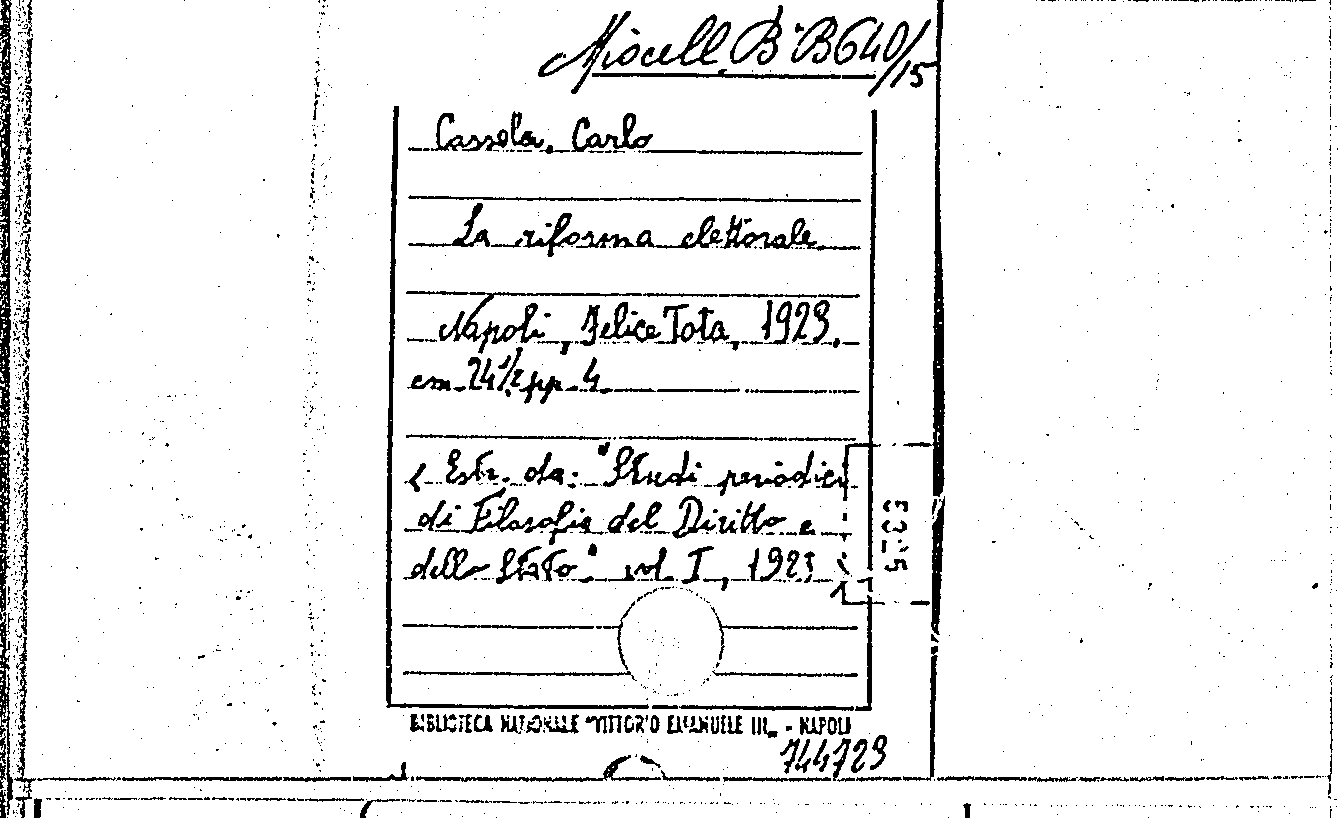 Miscell. B. B640/15
Cassola, Carlo
La riforma elettorale
Napoli, Felice Tota, 1923.
cm. 24 1/2 pp. 4.
( Estr. da: "Studi periodici
di Filosofia del Diritto e
dello Stato" vol. I, 1923
BIBLIOTECA NAZIONALE "VITTORIO EMANUELE III" - NAPOLI
744729